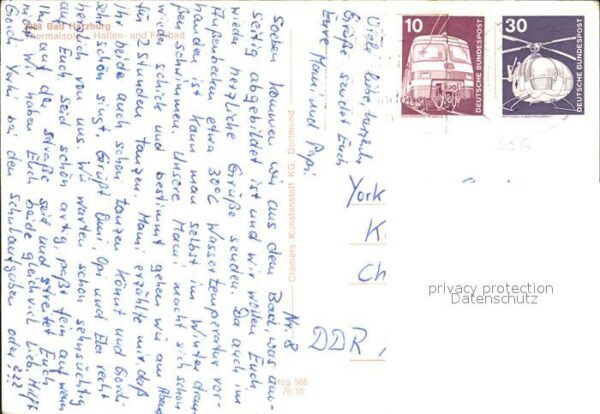 3388 Bad Harzburg
Thermalsole - Hallen- und Freibad
Soeben kommen wir aus dem Bad was um-
seitig abgebildet ist und wir wollen Euch
viele herzliche Grüße senden. Da auch im
Außenbecken etwa 30°C Wassertemperatur vor-
handen ist kann man selbst im Winter drau-
ßen schwimmen. Unsere Mami macht sich schon
wieder schick und bestimmt gehen wir am Abend
ein 2 Stunden tanzen. Mami erzählte mir daß
Ihr beide auch schon tanzen könnt und Gordi
sehr schön singt. Grüßt Omi, Opi und Ela recht
herzlich von uns. Wir warten schon sehnsüchtig
auf Euch, seid schön artig, paßt fein auf wenn
Ihr auf der Straße seid und streitet Euch
nicht, wir haben Euch beide gleich viel lieb. Helft
Gordi auch bei den Schulaufgaben oder ???
Viele liebe, herzliche
Grüße sendet Euch
Eure Mami und Papi
Cramers Kunstanstalt KG, Dortmund
Nr. 8
Hzg 565
76 10
10
DEUTSCHE BUNDESPOST
30
DEUTSCHE BUNDESPOST
York
K
Ch
DDR
privacy protection
Datenschutz